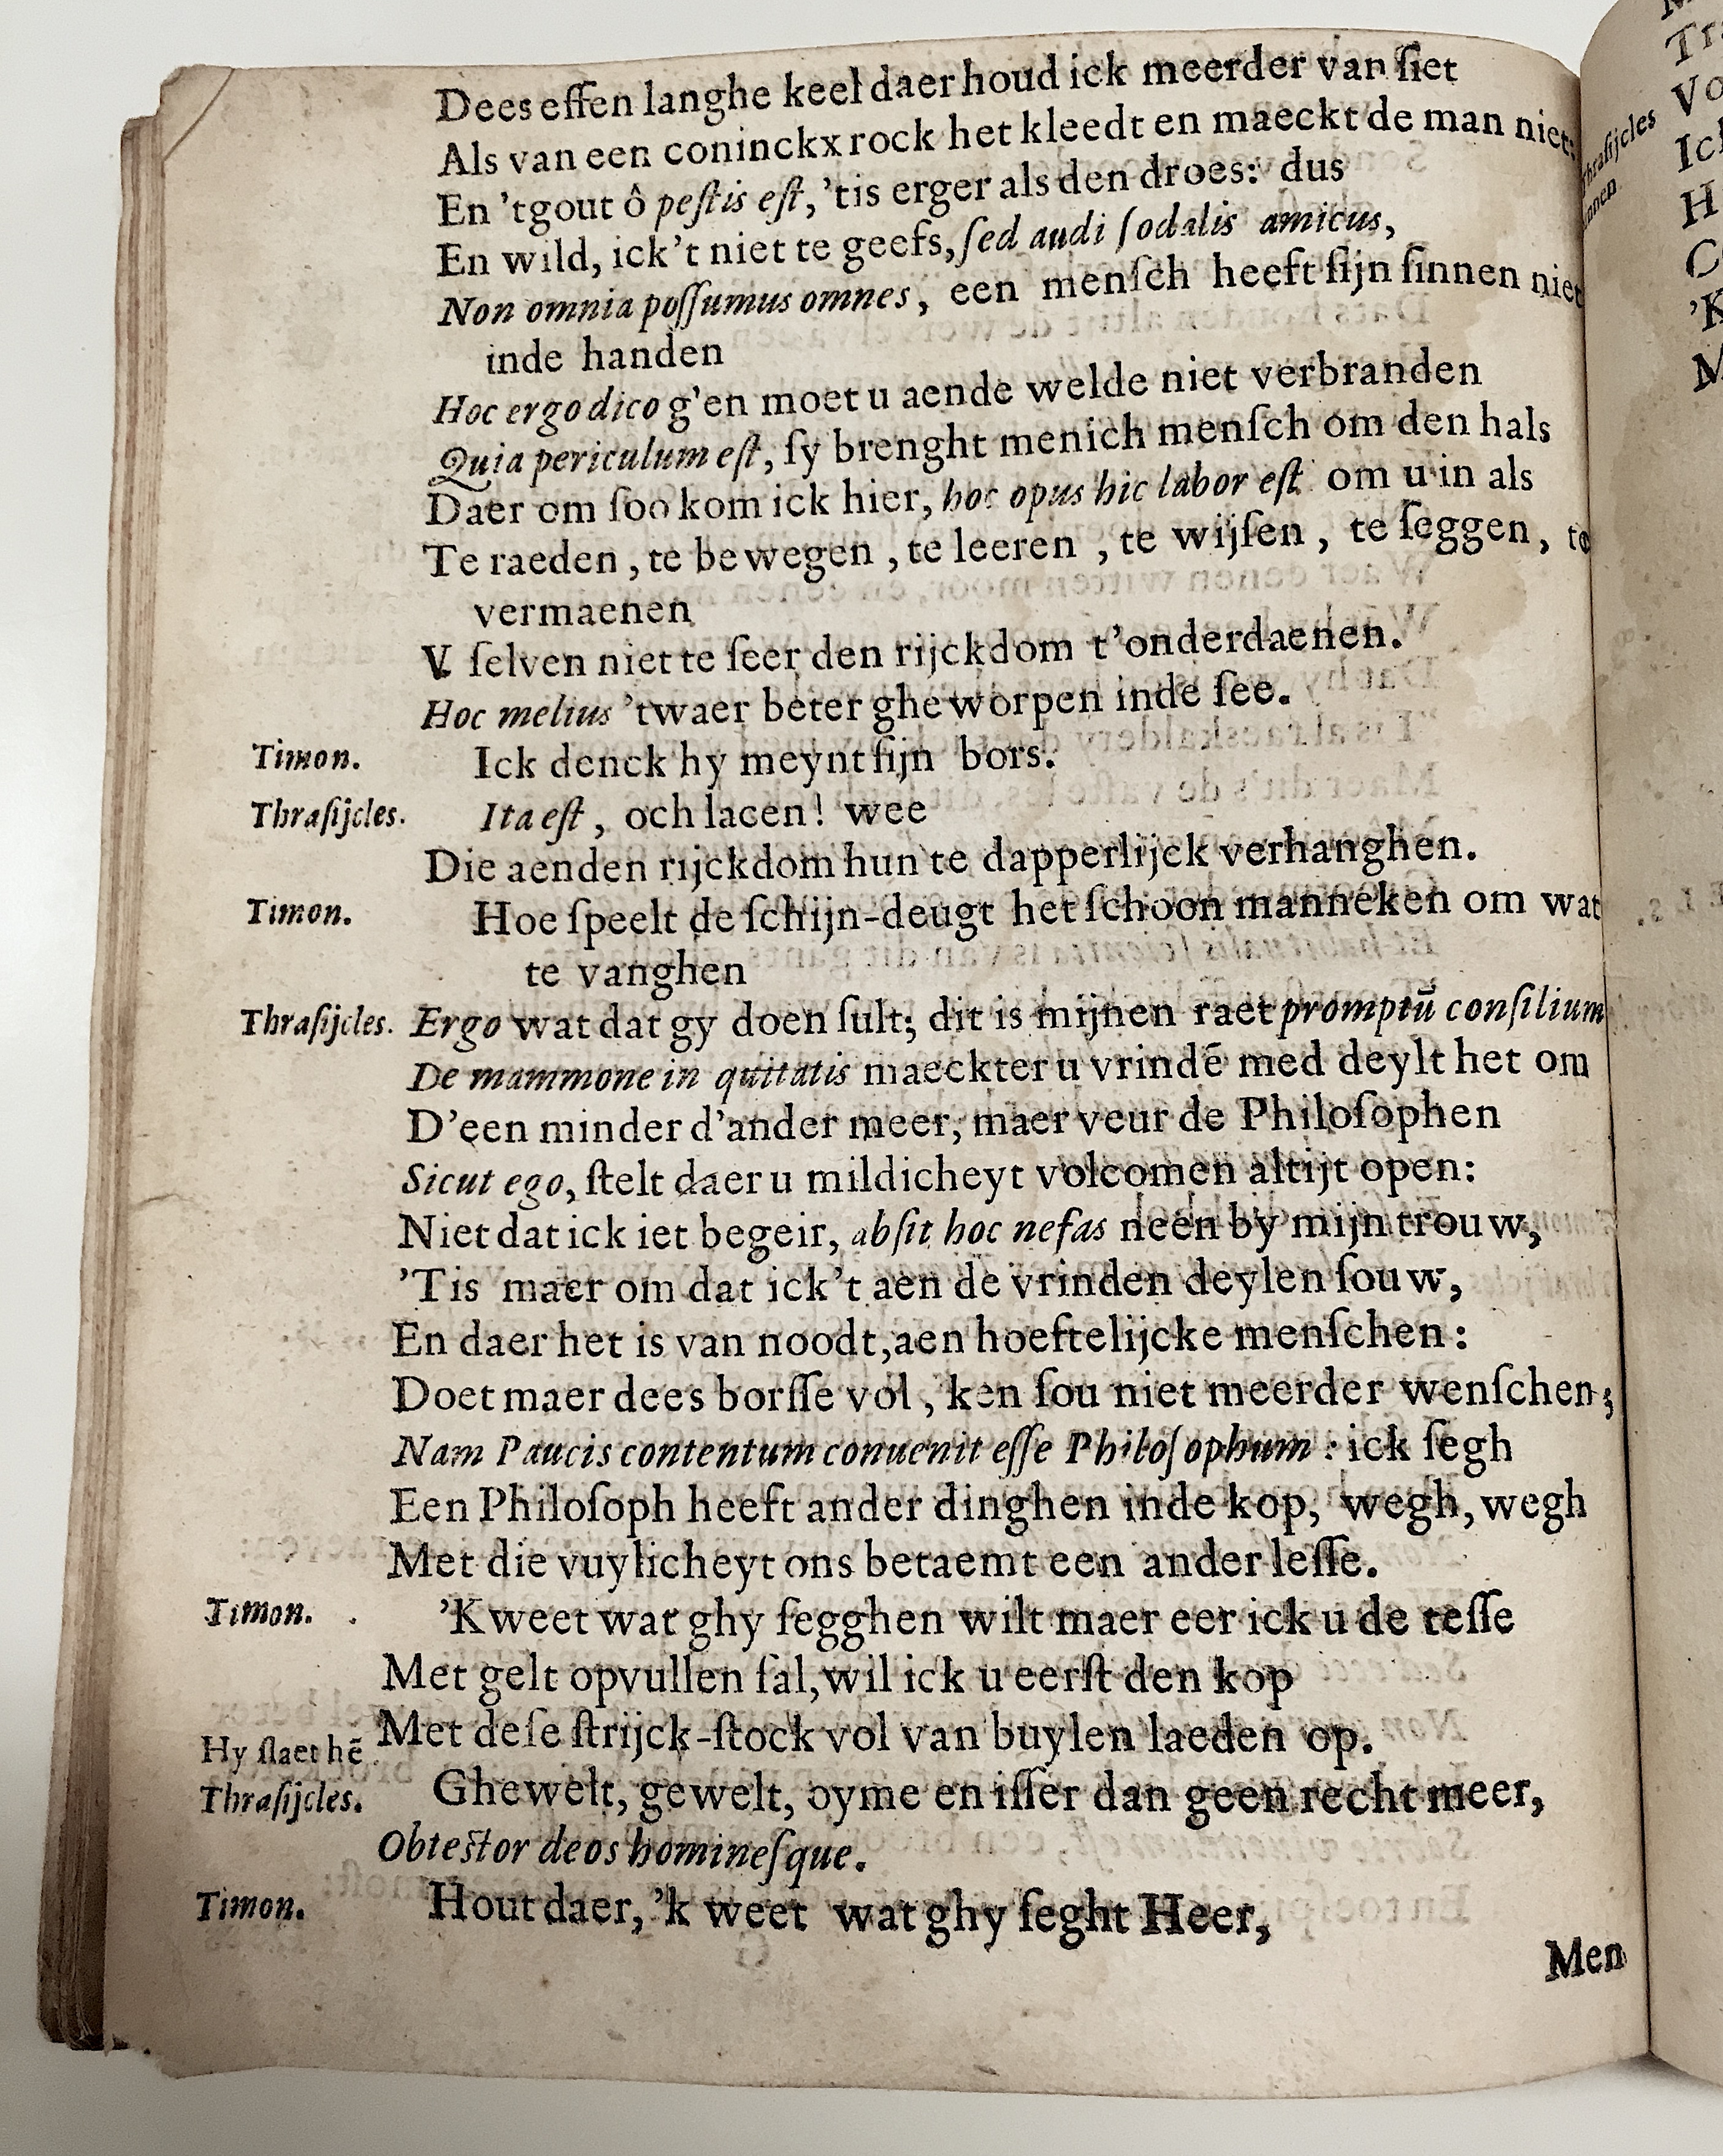 Dees effen langhe keel daer houd ick meerder van ſiet
Als van een coninckx rock het kleedt en maeckt de man niet:
En 'tgout ô peſtis eſt, 'tis erger als den droes: dus
En wild, ick't niet te geefs, ſed audi ſodalis amicus,
Non omnia poſſumus omnes, een menſch heeft ſijn ſinnen niet
inde handen
Hoc ergo dico g'en moet u aende welde niet verbranden
Quia periculum eſt, ſy brenght menich menſch om den hals
Daer om ſoo kom ick hier, hoc opus hic labor eſt om u in als
Te raeden, te bewegen, te leeren, te wijſen, te ſeggen, te
vermaenen
V ſelven niet te ſeer den rijckdom t'onderdaenen.
Hoc melius 'twaer beter gheworpen inde ſee.
Timon. Ick denck hy meynt ſijn bors.
Thraſijcles. Ita eſt, och lacen! wee
Die aenden rijckdom hun te dapperlijck verhanghen.
Timon. Hoe ſpeelt de ſchijn-deugt het ſchoon manneken om wat
te vanghen
Thraſijcles. Ergo wat dat gy doen ſult; dit is mijnen raet promptū conſilium
De mammone in quitatis maeckter u vrindē med deylt het om
D'een minder d'ander meer, maer veur de Philoſophen
Sicut ego, ſtelt daer u mildicheyt volcomen altijt open:
Niet dat ick iet begeir, abſit hoc nefas neen by mijn trouw,
'Tis maer om dat ick't aen de vrinden deylen ſouw,
En daer het is van noodt, aen hoeftelijcke menſchen:
Doet maer dees borſſe vol, ken ſou niet meerder wenſchen;
Nam Paucis contentum conuenit eſſe Philoſophum: ick ſegh
Een Philoſoph heeft ander dinghen inde kop, wegh, wegh
Met die vuylicheyt ons betaemt een ander leſſe.
Timon. 'K weet wat ghy ſegghen wilt maer eer ick u de teſſe
Met gelt opvullen ſal, wil ick u eerſt den kop
Met deſe ſtrijck-ſtock vol van buylen laeden op.
Hy ſlaet hē
Thraſijcles. Ghewelt, gewelt, oyme en iſſer dan geen recht meer,
Obteſtor deos homineſque.
Timon. Hout daer, 'k weet wat ghy ſeght Heer,
Men
Thraſijcles